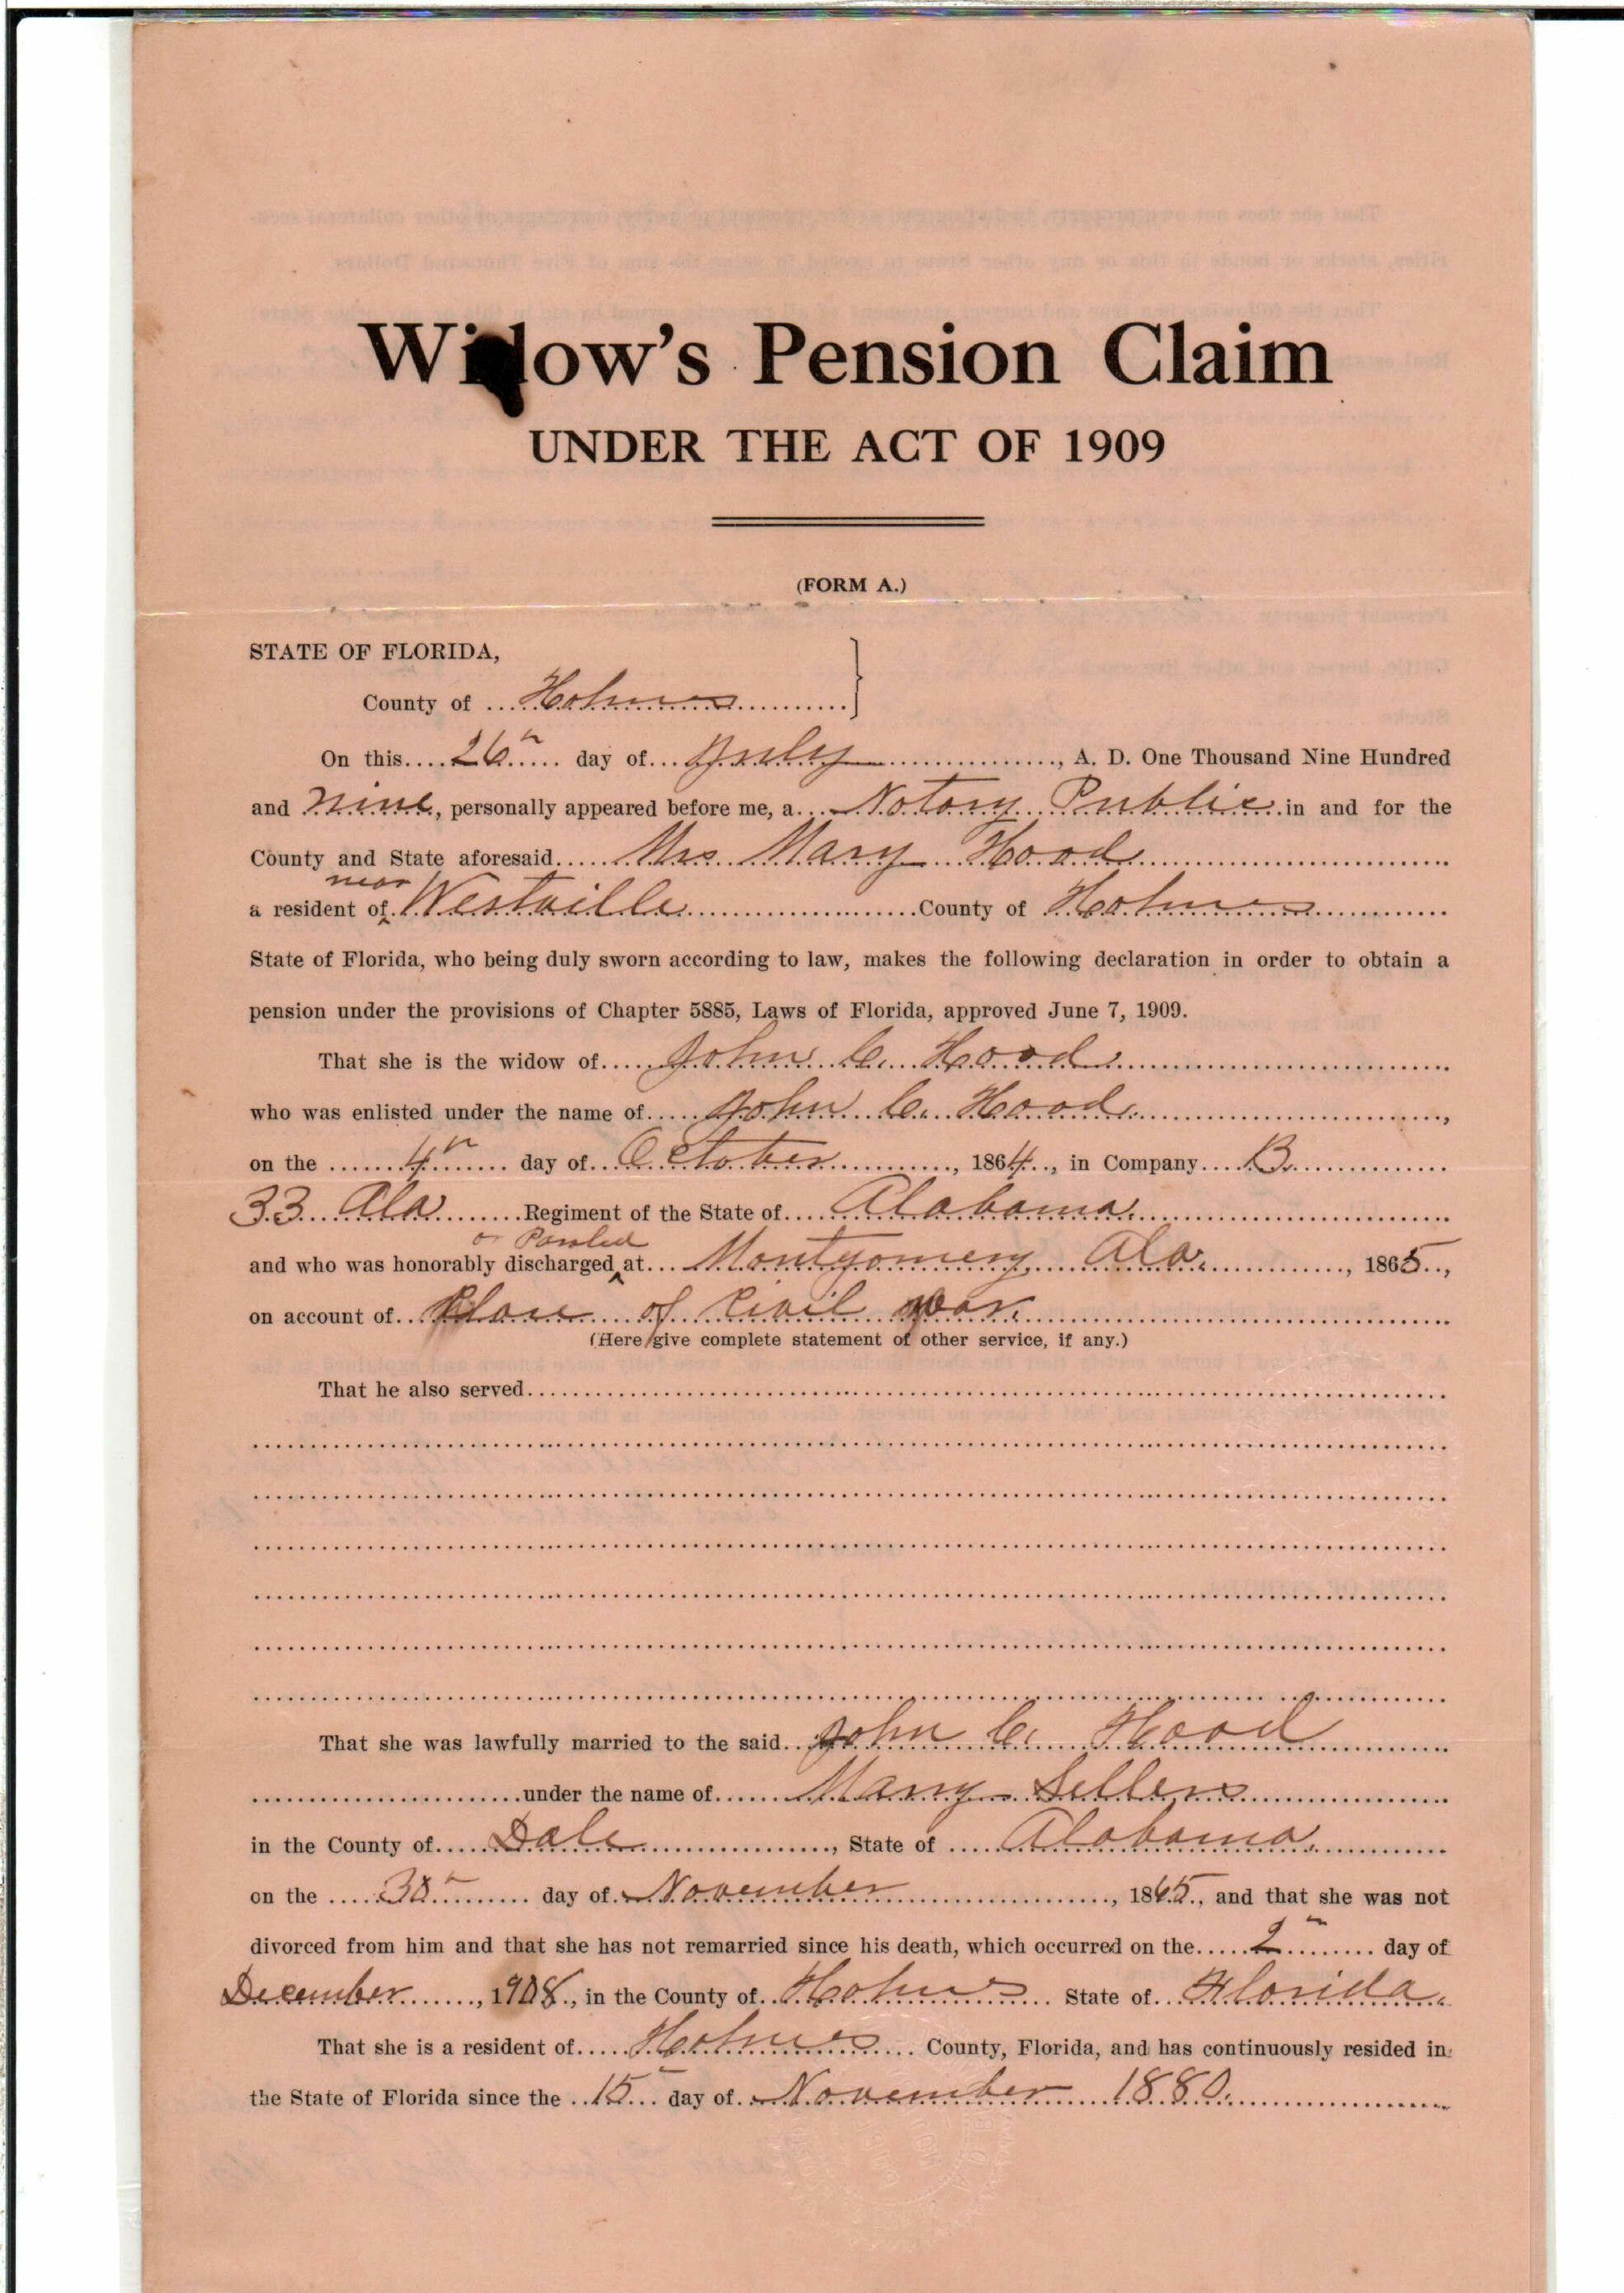 Widow's Pension Claim
UNDER THE ACT OF 1909
(FORM A.)
STATE OF FLORIDA,
County of Holmes
On this 26th day of July, A. D. One Thousand Nine Hundred
and nine, personally appeared before me, a Notary Public in and for the
County and State aforesaid Mrs. Mary Hood
near
a resident of Westville County of Holmes
State of Florida, who being duly sworn according to law, makes the following declaration in order to obtain a
pension under the provisions of Chapter 5885, Laws of Florida, approved June 7, 1909.
That she is the widow of John C. Hood
who was enlisted under the name of John C. Hood,
on the 4th day of October, 1864, in Company B.
33 Ala Regiment of the State of Alabama.
or Paroled
and who was honorably discharged at Montgomery Ala., 1865,
on account of Close of Civil War.
(Here give complete statement of other service, if any.)
That he also served
That she was lawfully married to the said John C. Hood
under the name of Mary Sellers
in the County of Dale, State of Alabama.
on the 30 day of November, 1865, and that she was not
divorced from him and that she has not remarried since his death, which occurred on the 2 day of
December, 1908, in the County of Holmes State of Florida.
That she is a resident of Holmes County, Florida, and has continuously resided in
the State of Florida since the 15 day of November 1880.